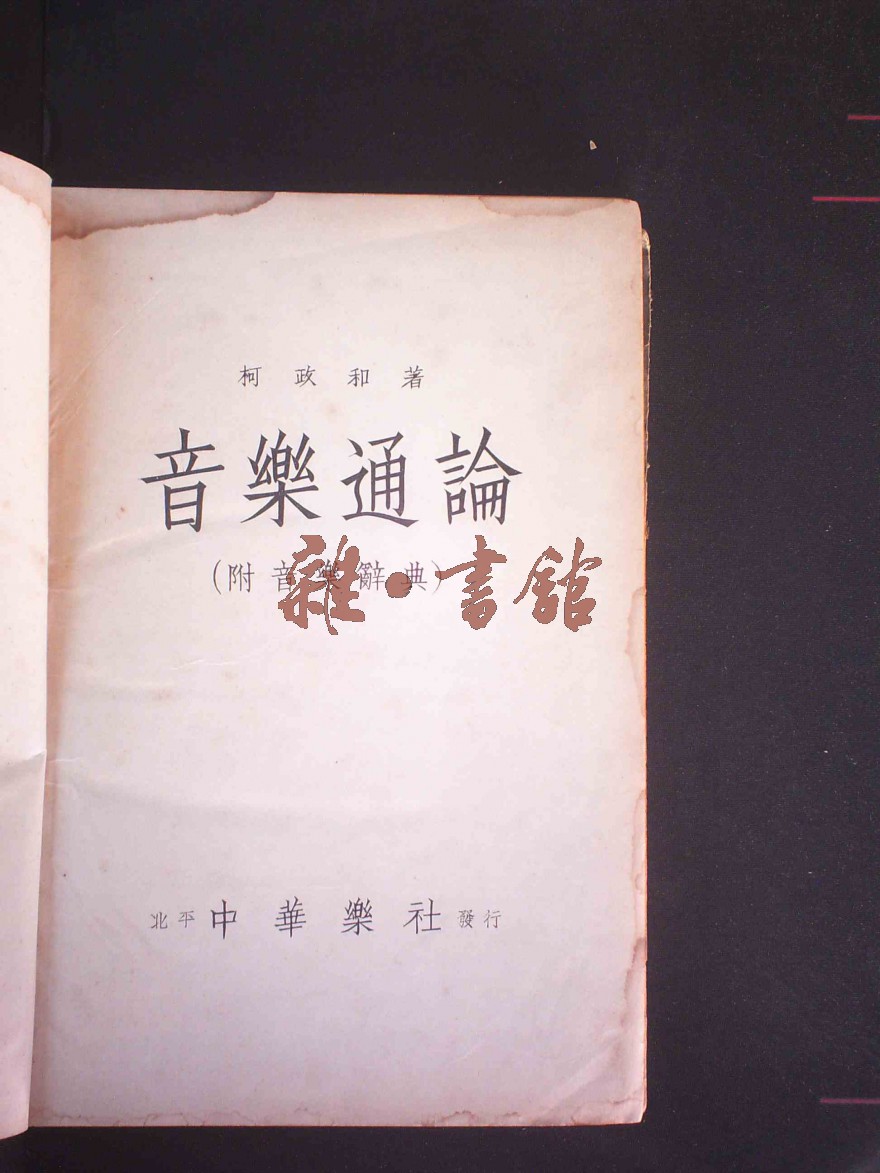 柯政和著
音樂通論
(附音樂辭典)
雜·書館
北平 中華樂社 發行